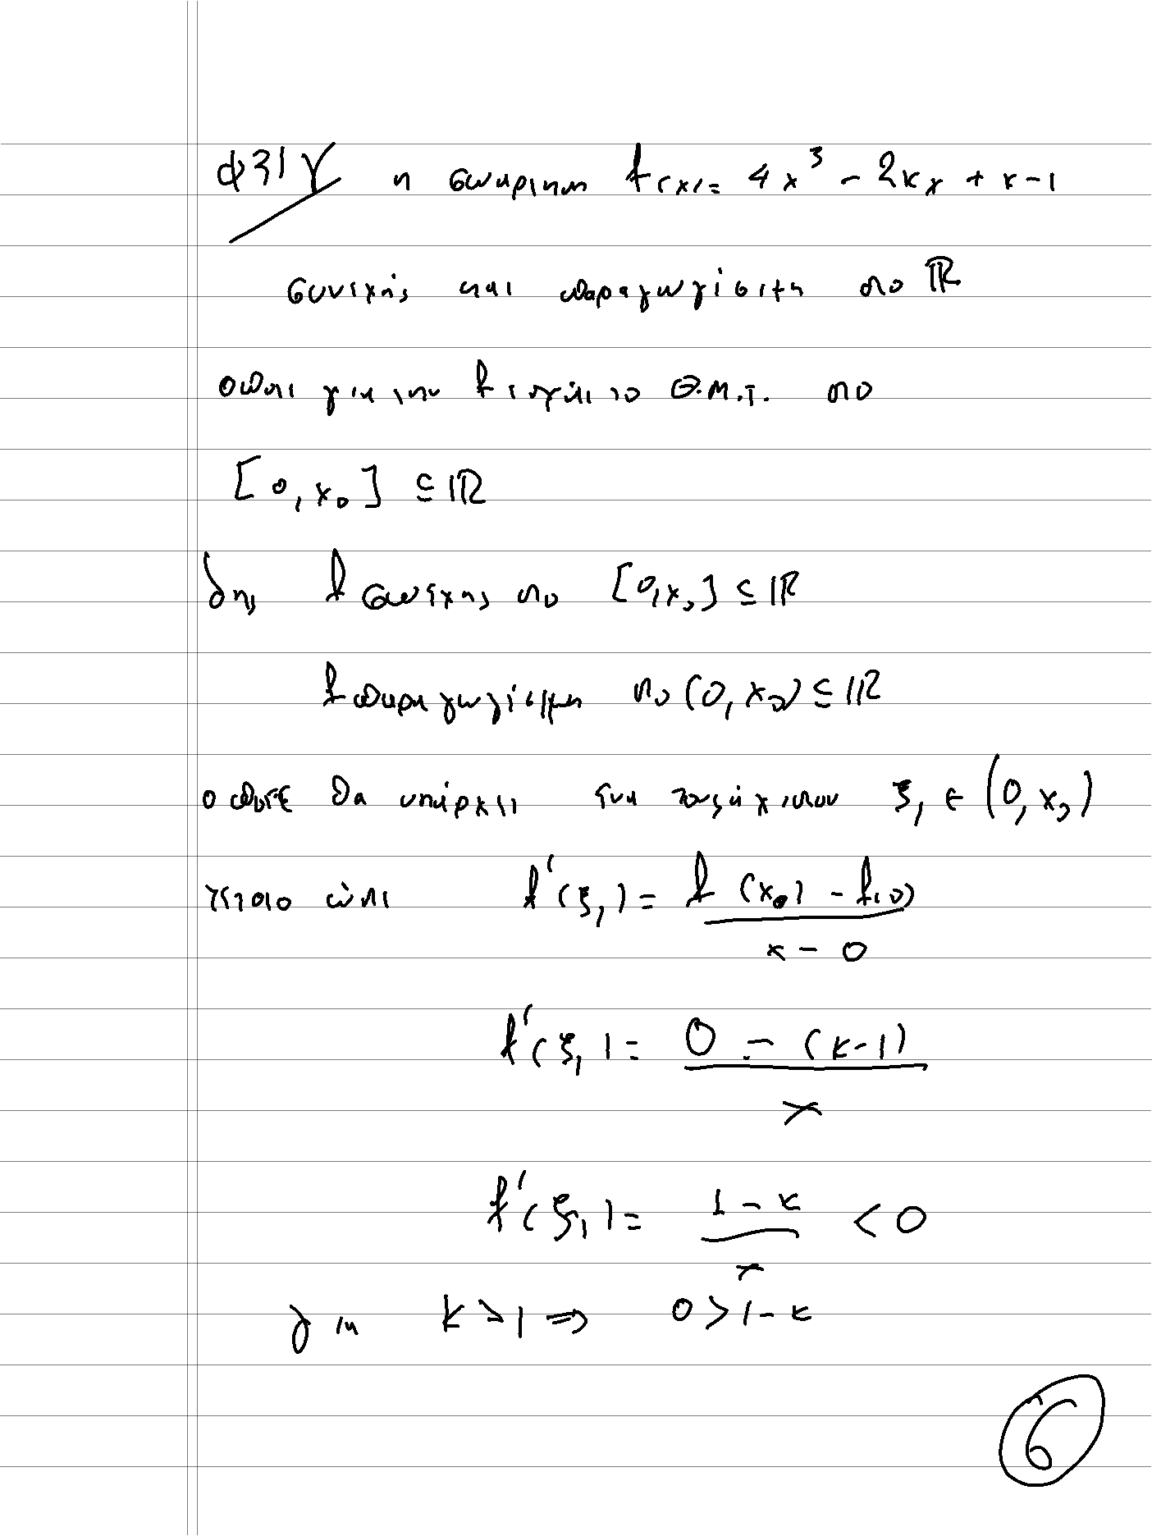 φ31γ η συνάρτηση f(x)= 4x³ - 2κx + κ-1
συνεχής και παραγωγίσιμη στο ℝ
οπότε για την f ισχύει το Θ.Μ.Τ. στο
[0, x₀] ⊆ ℝ
δηλ f συνεχής στο [0,x₀] ⊆ ℝ
f παραγωγίσιμη στο (0, x₀) ⊆ ℝ
οπότε θα υπάρχει ένα τουλάχιστον ξ₁ ∈ (0, x₀)
τέτοιο ώστε f'(ξ₁) = f(x₀) - f(0) / x - 0
f'(ξ₁) = 0 - (κ-1) / x
f'(ξ₁) = 1 - κ / x < 0
για κ > 1 ⇒ 0 > 1 - κ
6